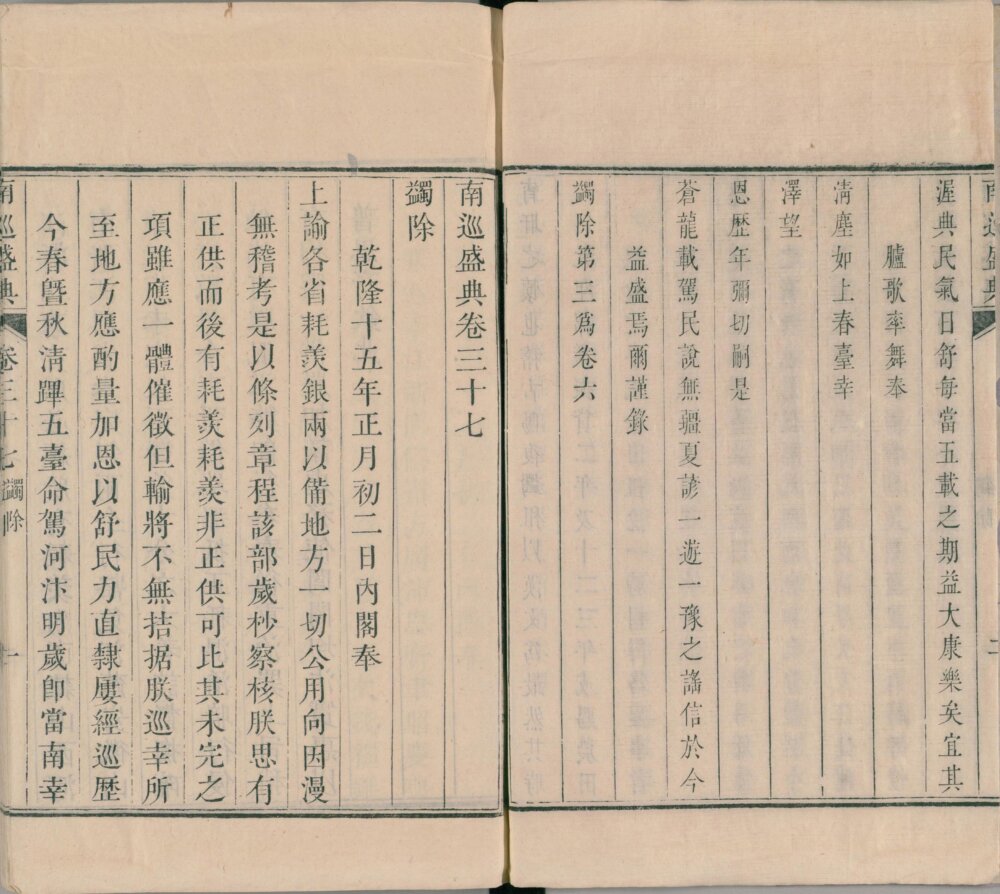 南巡盛典
二
渥典民氣日舒每當五載之期益大康樂矣宜其
臚歌率舞奉
清塵如上春臺幸
澤望
恩歷年彌切嗣是
蒼龍載駕民說無疆夏諺一遊一豫之謠信於今
益盛焉爾謹錄
蠲除第三爲卷六
南巡盛典卷三十七
蠲除
乾隆十五年正月初二日內閣奉
上諭各省耗羨銀兩以備地方一切公用向因漫
無稽考是以條列章程該部歲杪察核朕思有
正供而後有耗羨耗羨非正供可比其未完之
項雖應一體催徵但輸將不無拮据朕巡幸所
至地方應酌量加恩以舒民力直隸屢經巡歷
今春暨秋淸蹕五臺命駕河汴明歲卽當南幸
南巡盛典 卷三十七 蠲除 一